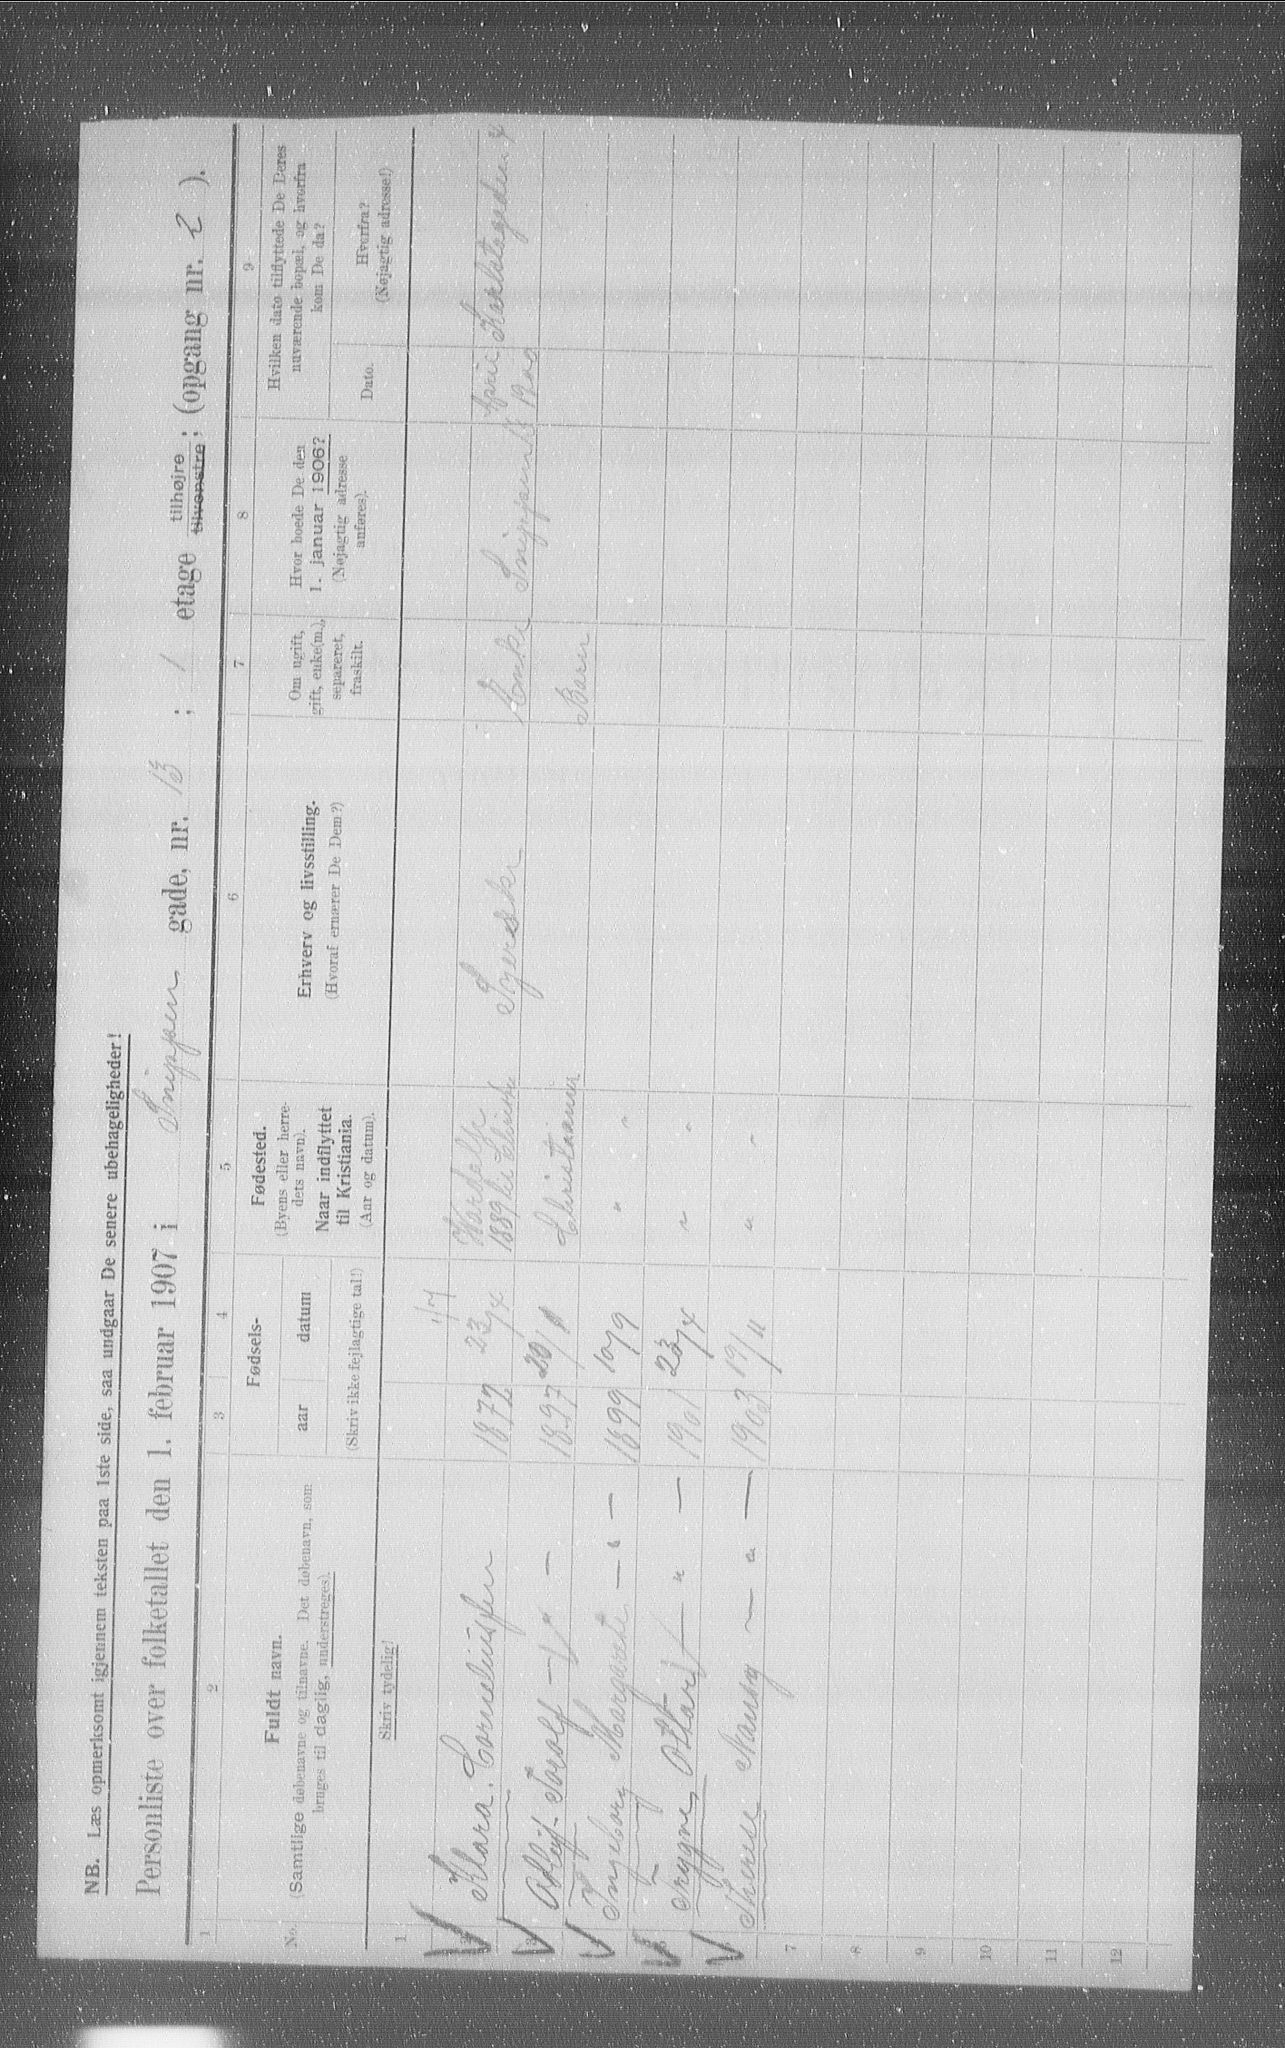 NB. Læs opmerksomt igjennem teksten paa 1ste side, saa undgaar De senere ubehageligheder!
Personliste over folketallet den 1. februar 1907 i Snippen gade, nr. 13 ; 1 etage tilhøjre ; (opgang nr. 2 ).
tilvenstre
1 2 3 4 5 6 7 8 9
No.
Fuldt navn.
(Samtlige døbenavne og tilnavne. Det døbenavn, som
bruges til daglig, understreges).
Skriv tydelig!
Fødsels-
aar datum
(Skriv ikke fejlagtige tal!)
Fødested.
(Byens eller herre-
dets navn).
Naar indflyttet
til Kristiania.
(Aar og datum).
Erhverv og livsstilling.
(Hvoraf ernærer De Dem?)
Om ugift,
gift, enke(m.),
separeret,
fraskilt.
Hvor boede De den
1. januar 1906?
(Nøjagtig adresse
anføres).
Hvilken dato tilflyttede De Deres
nuværende bopæl, og hvorfra
kom De da?
Dato.
Hvorfra?
(Nøjagtig adresse!)
1
1/7
Klara. 1872 23/4 Enke April
1889
1897 Christiania Barn
Ingeborg Margarete — " — 1899 10/9 " "
Trygve, Othar — " — 1901 23/4 " "
— " — 1903 19/11 " "
7
8
9
10
11
12